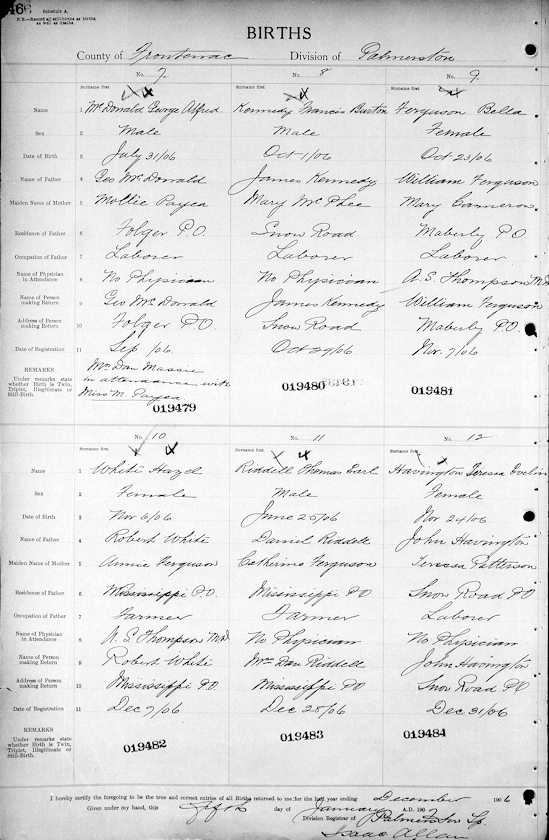 466
Schedule A.
N.B.—Record all still births as births as well as deaths.
BIRTHS
County of Frontenac Division of Palmerston
No. 7 No. 8 No. 9
Surname first Surname first Surname first
Name 1 McDonald George Alfred Kennedy Francis Burton Ferguson Bella
Sex 2 Male Male Female
Date of Birth 3 July 31/06 Oct 1/06 Oct 23/06
Name of Father 4 Geo McDonald James Kennedy William Ferguson
Maiden Name of Mother 5 Mollie Payea Mary McPhee Mary Cameron
Residence of Father 6 Folger P.O. Snow Road Maberly PO
Occupation of Father 7 Laborer Laborer Laborer
Name of Physician in Attendance 8 No Physician No Physician A. S. Thompson M.D
Name of Person making Return 9 Geo McDonald James Kennedy William Ferguson
Address of Person making Return 10 Folger PO Snow Road Maberly P.O.
Date of Registration 11 Sep 1/06 Oct 29/06 Nov. 7/06
REMARKS
Under remarks state whether Birth is Twin, Triplet, Illegitimate or Still-Birth.
Mrs Dan Massie
in attendance with
Miss M. Payea
019479 019480 019481
No. 10 No. 11 No. 12
Surname first Surname first Surname first
Name 1 White Hazel Riddell Thomas Earl Havington Teresa Evelin
Sex 2 Female Male Female
Date of Birth 3 Nov 6/06 June 25/06 Nov 24/06
Name of Father 4 Robert White Daniel Riddell John Havington
Maiden Name of Mother 5 Annie Ferguson Catherine Ferguson Teressa Patterson
Residence of Father 6 Mississippi P.O. Mississippi PO Snow Road PO
Occupation of Father 7 Farmer Farmer Laborer
Name of Physician in Attendance 8 A. S Thompson MD No Physician No Physician
Name of Person making Return 9 Robert White Mrs Dan Riddell John Havington
Address of Person making Return 10 Mississippi P.O. Mississippi PO Snow Road PO
Date of Registration 11 Dec 7/06 Dec 25/06 Dec 31/06
REMARKS
Under remarks state whether Birth is Twin, Triplet, Illegitimate or Still-Birth.
019482 019483 019484
I hereby certify the foregoing to be the true and correct entries of all Births returned to me, for the half year ending December 1906
Given under my hand, this fifth day of January A.D. 190
Division Registrar of Palmerston Tp
Isaac Allan